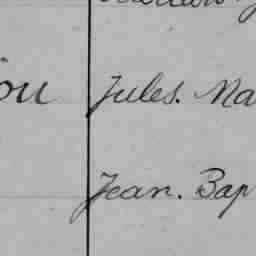 ou Jules. Ma
Jean. Bap